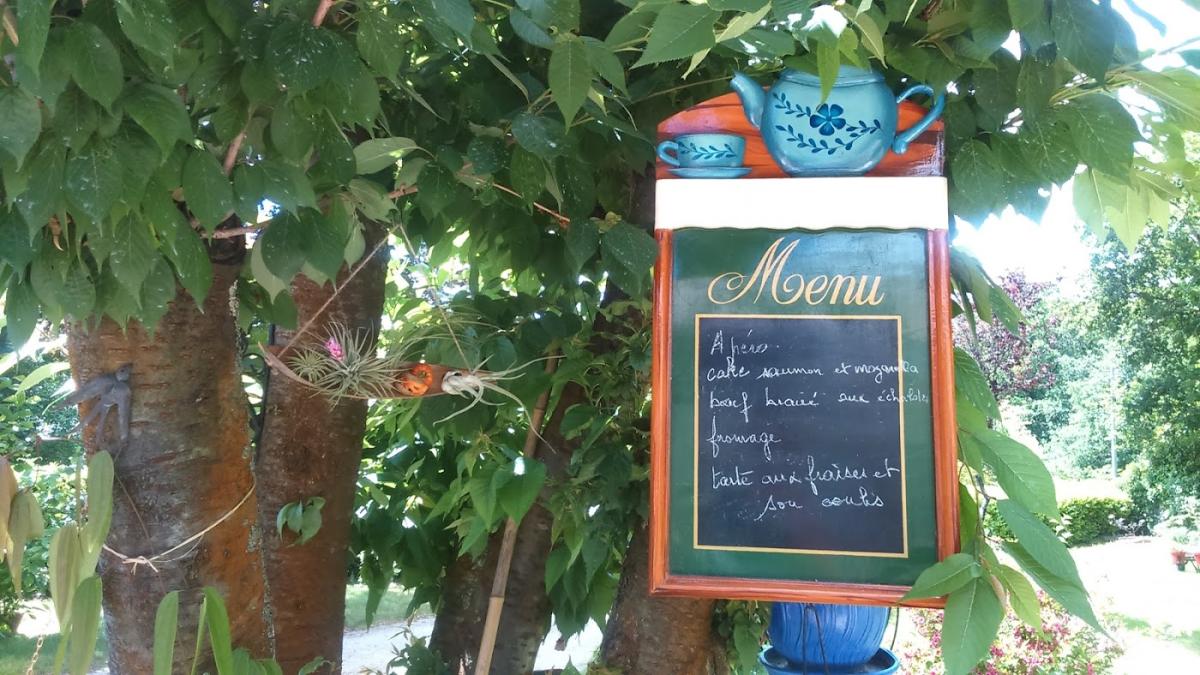 Menu
Apéro
cake saumon et mozarella
bœuf braisé aux échalotes
fromage
tarte aux fraises et
son coulis